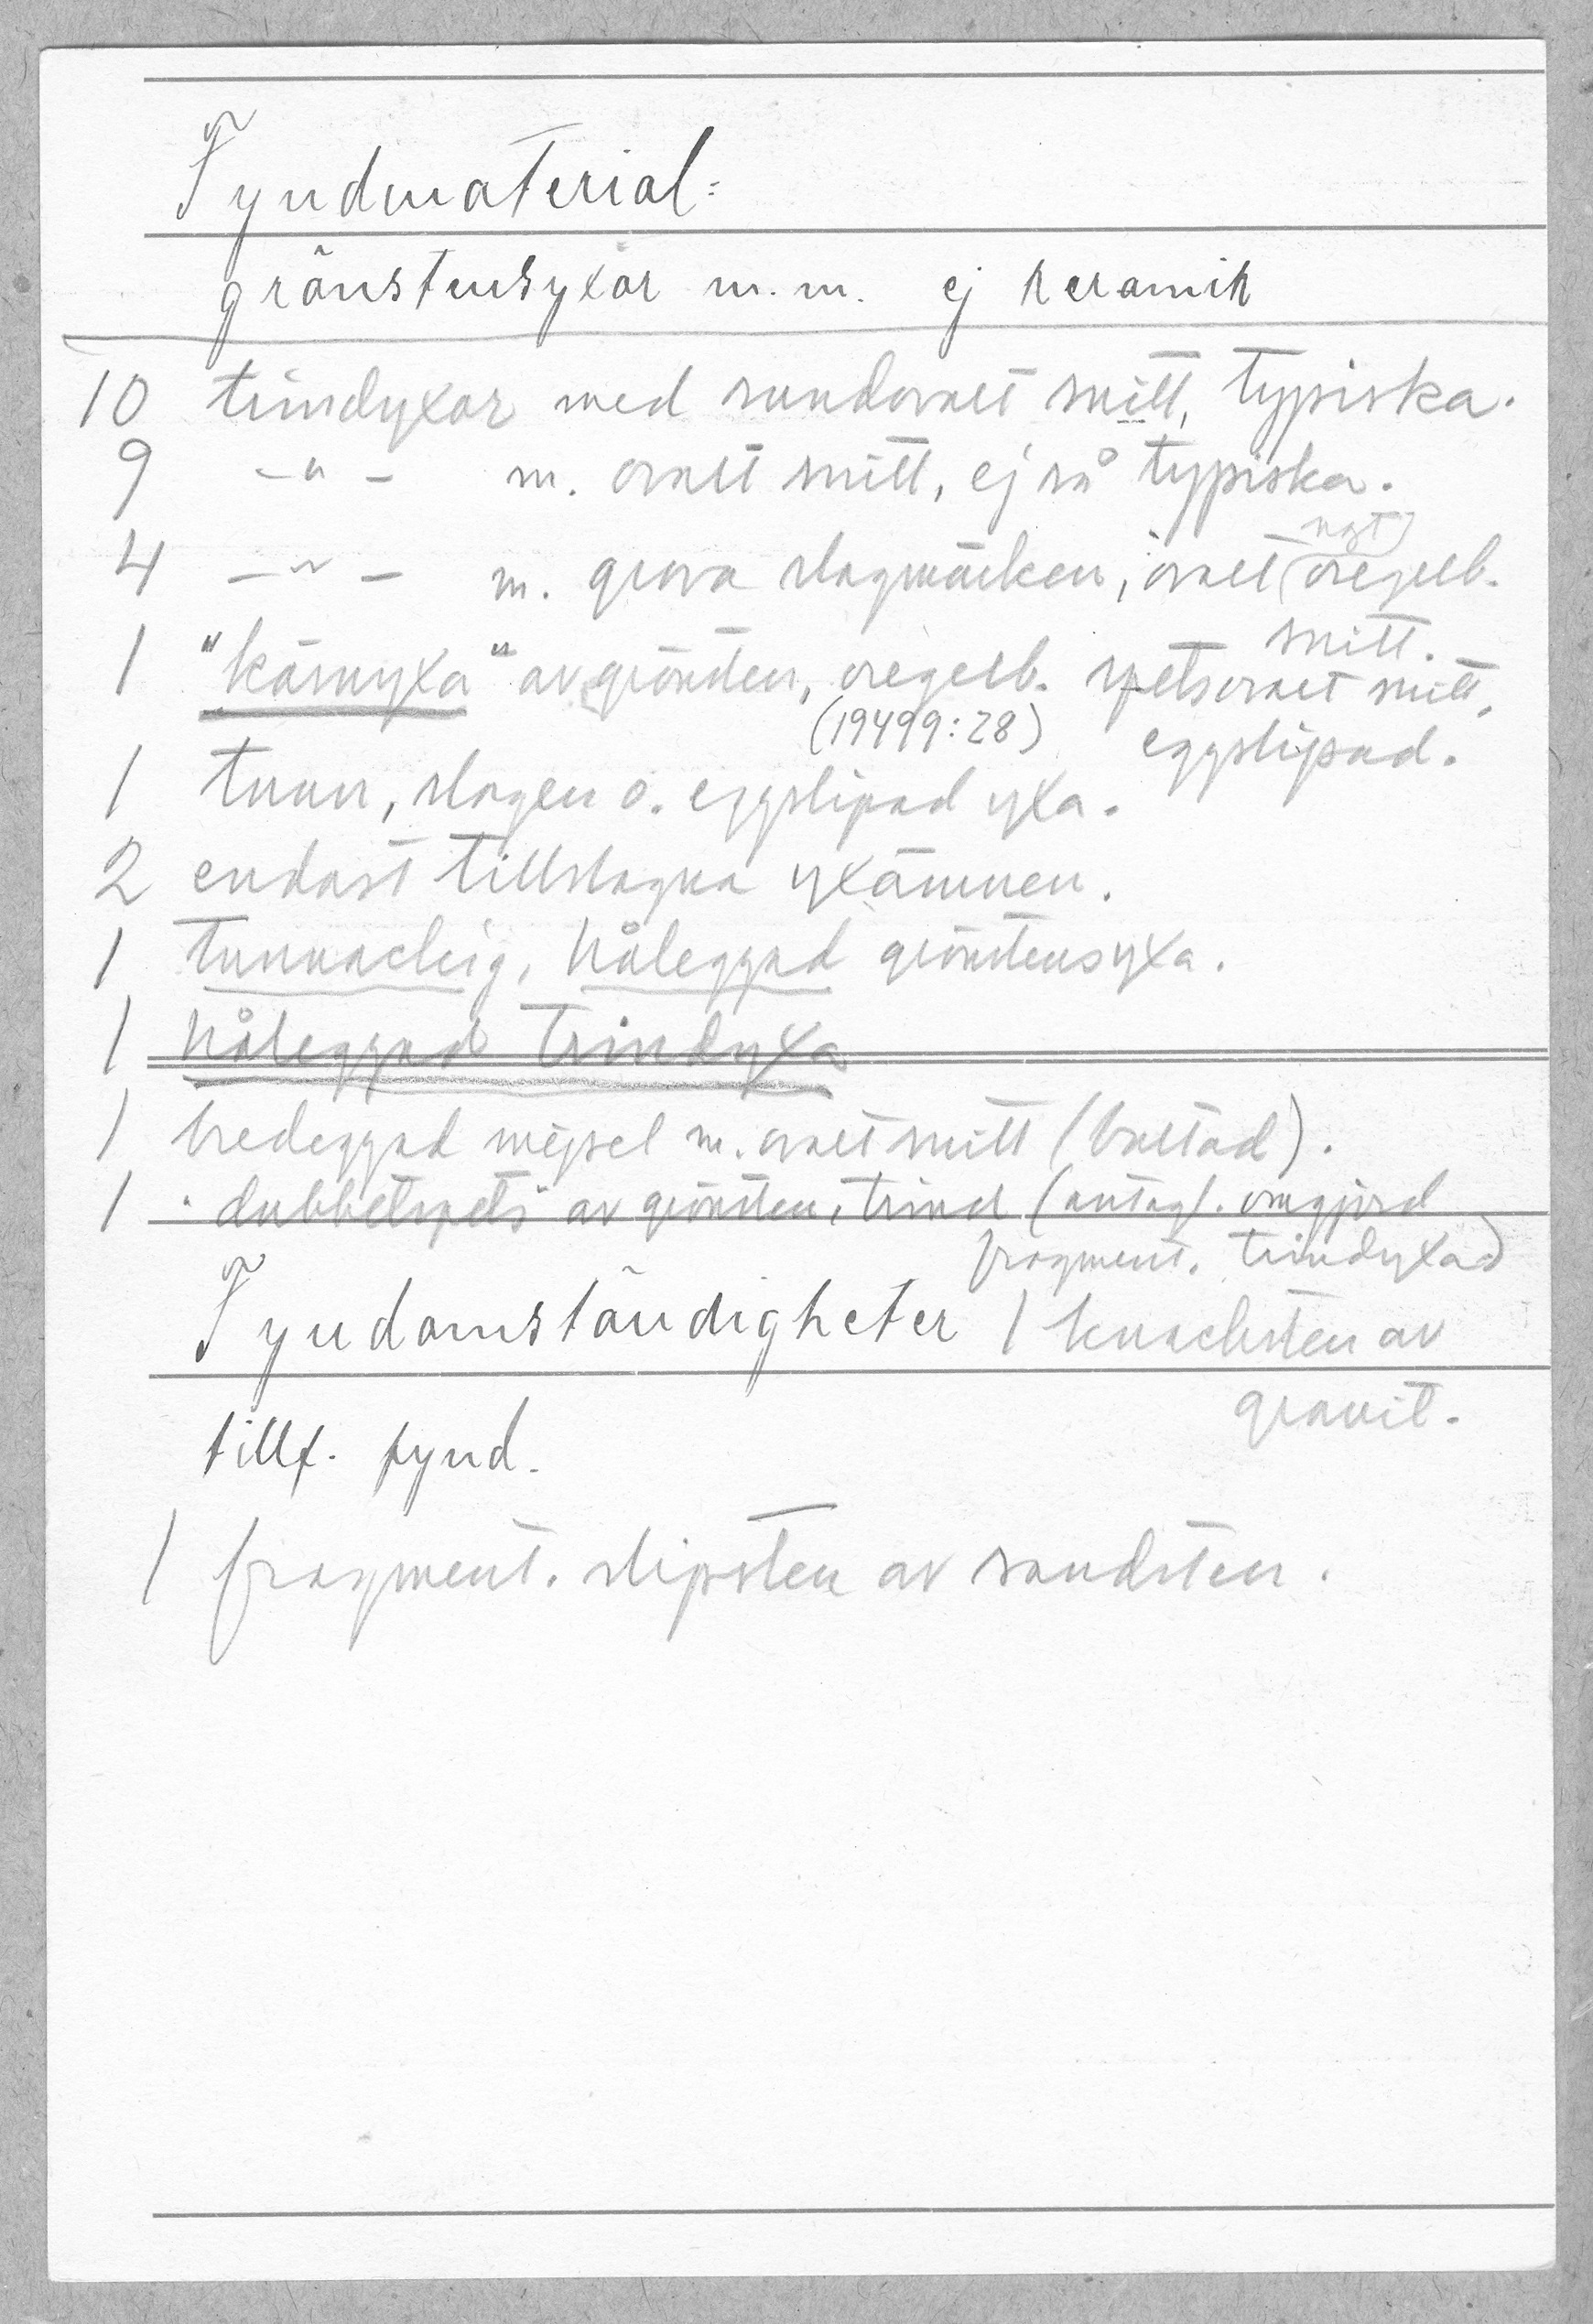 Fyndmaterial:
grönstensyxor m.m. ej keramik
10 trindyxor med rundovalt snitt, typiska.
9 -"- m. ovalt snitt, ej så typiska.
4 -"- m. grova slagmärken, ovalt (ngt) oregelb. snitt.
1 "kärnyxa" av grönsten, oregelb. spetsovalt snitt, eggslipad.
(19499:28)
1 tunn, slagen o. eggslipad yxa.
2 endast tillslagna yxämnen.
1 tunnackig, håleggad grönstensyxa.
1 håleggad trindyxa
1 bredeggad mejsel m. ovalt snitt (bultad).
1 "dubbelspets" av grönsten, trind (antagl. omgjord
fragment. trindyxa)
Fyndomständigheter
1 knacksten av
granit.
tillf. fynd.
1 fragment. slipsten av sandsten.